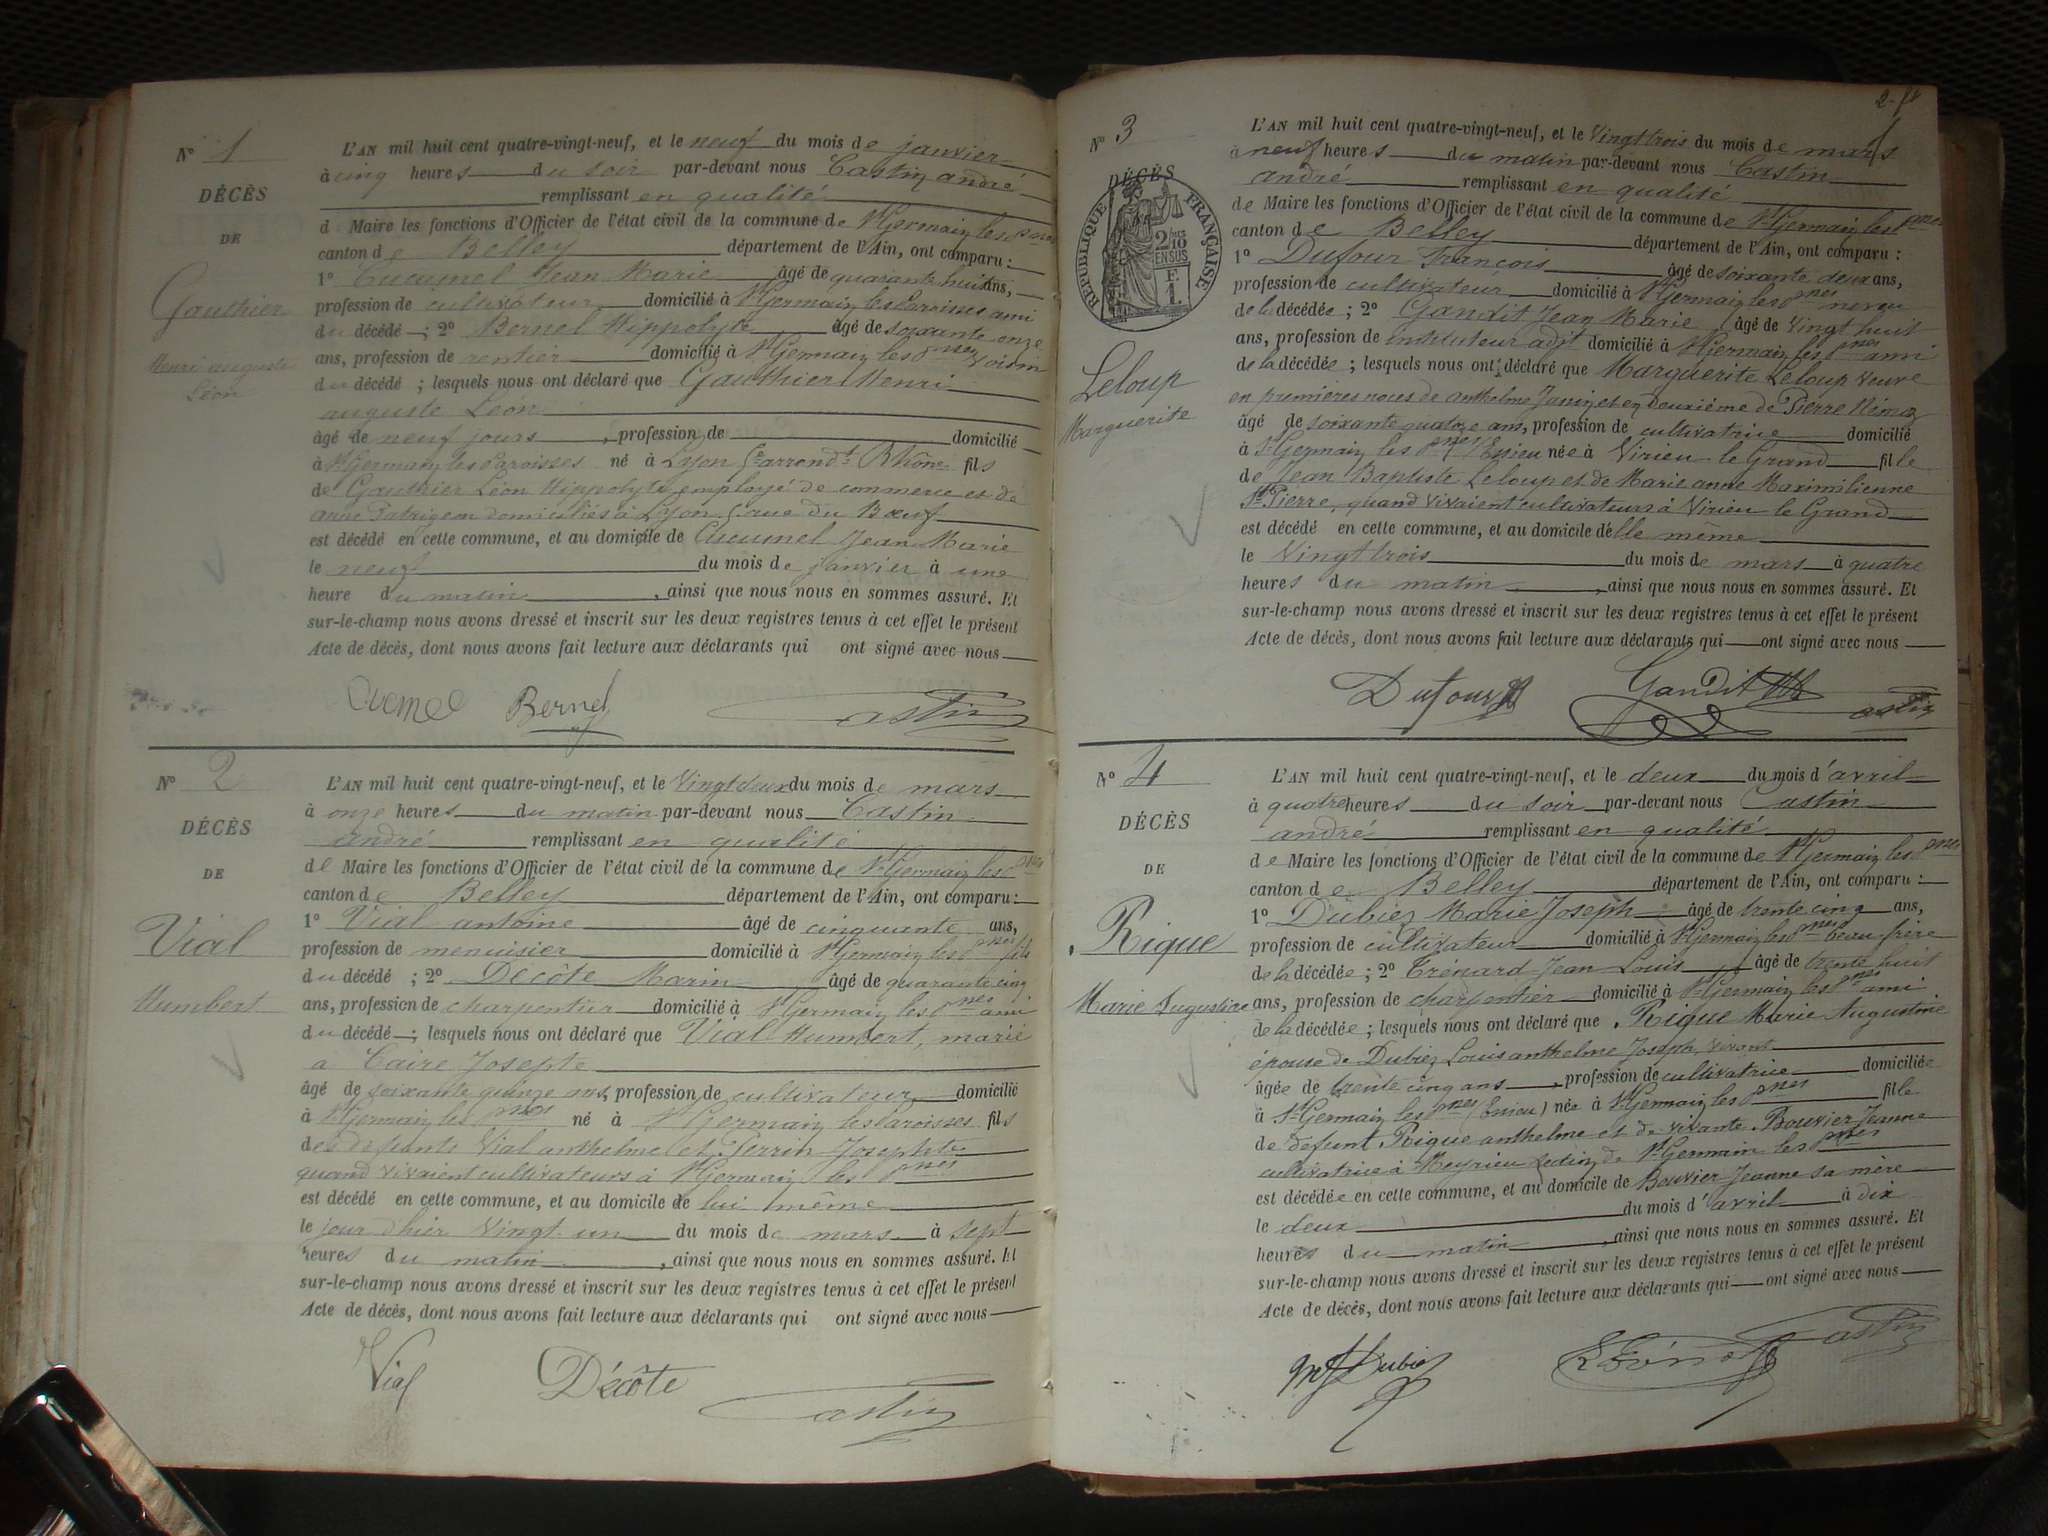 N° 1
DÉCÈS
DE
Gauthier
Henri auguste
Léon
L'AN mil huit cent quatre-vingt-neuf, et le neuf du mois de janvier
à cinq heures du soir par-devant nous Castin andré
remplissant en qualité
d Maire les fonctions d'Officier de l'état civil de la commune de St Germain les pses
canton de Belley département de l'Ain, ont comparu :
1° Cucumel Jean Marie âgé de quarante huit ans,
profession de cultivateur domicilié à St Germain les Paroisses ami
du décédé ; 2° Bernel Hippolyte âgé de soixante onze
ans, profession de rentier domicilié à St Germain les pses voisin
du décédé ; lesquels nous ont déclaré que Gauthier Henri
auguste Léon
âgé de neuf jours, profession de domicilié
à St Germain les Paroisses né à Lyon 5e arrondt Rhône fils
de Gauthier Léon Hippolyte employé de commerce et de
domiciliés à Lyon 5 rue du Bœuf
est décédé en cette commune, et au domicile de Cucumel Jean Marie
le neuf du mois de janvier à une
heure du matin, ainsi que nous nous en sommes assuré. Et
sur-le-champ nous avons dressé et inscrit sur les deux registres tenus à cet effet le présent
Acte de décès, dont nous avons fait lecture aux déclarants qui ont signé avec nous
Bernel Castin
N° 2
DÉCÈS
DE
Vial
Humbert
L'AN mil huit cent quatre-vingt-neuf, et le Vingt deux du mois de mars
à onze heures du matin par-devant nous Castin
andré remplissant en qualité
de Maire les fonctions d'Officier de l'état civil de la commune de St Germain les pses
canton de Belley département de l'Ain, ont comparu :
1° Vial antoine âgé de cinquante ans,
profession de menuisier domicilié à St Germain les pses fils
du décédé ; 2° Decôte Marin âgé de quarante cinq
ans, profession de charpentier domicilié à St Germain les pses ami
du décédé ; lesquels nous ont déclaré que Vial Humbert, marié
a Caire Josepte
âgé de soixante quinze ans, profession de cultivateur domicilié
à St Germain les pses né à St Germain les Paroisses fils
des defunts Vial anthelme et Perrin Josephte
quand vivaient cultivateurs à St Germain les pses
est décédé en cette commune, et au domicile de lui même
le jour d'hier Vingt un du mois de mars à sept
heures du matin, ainsi que nous nous en sommes assuré. Et
sur-le-champ nous avons dressé et inscrit sur les deux registres tenus à cet effet le présent
Acte de décès, dont nous avons fait lecture aux déclarants qui ont signé avec nous
Vial Décôte Castin
N° 3
DÉCÈS
RÉPUBLIQUE FRANÇAISE
2/10 EN SUS
Leloup
Marguerite
L'AN mil huit cent quatre-vingt-neuf, et le Vingt trois du mois de mars
à neuf heures du matin par-devant nous Castin
andré remplissant en qualité
de Maire les fonctions d'Officier de l'état civil de la commune de St Germain les pses
canton de Belley département de l'Ain, ont comparu :
1° Dufour François âgé de soixante deux ans,
profession de cultivateur domicilié à St Germain les pses neveu
de la décédée ; 2° Gandit Jean Marie âgé de Vingt huit
ans, profession de instituteur adjt domicilié à St Germain les pses ami
de la décédée ; lesquels nous ont déclaré que Marguerite Leloup veuve
en premières noces de anthelme Janin et en deuxième de Pierre
âgé de soixante quatorze ans, profession de cultivatrice domicilié
à St Germain les pses (Essieu) née à Virieu le Grand fille
de Jean Baptiste Leloup et de Marie anne Maximilienne
St Pierre, quand vivaient cultivateurs à Virieu le Grand
est décédé en cette commune, et au domicile d'elle même
le Vingt trois du mois de mars à quatre
heures du matin, ainsi que nous nous en sommes assuré. Et
sur-le-champ nous avons dressé et inscrit sur les deux registres tenus à cet effet le présent
Acte de décès, dont nous avons fait lecture aux déclarants qui ont signé avec nous
Dufour Gandit Castin
N° 4
DÉCÈS
DE
Rique
Marie Augustine
L'AN mil huit cent quatre-vingt-neuf, et le deux du mois d'avril
à quatre heures du soir par-devant nous Castin
andré remplissant en qualité
de Maire les fonctions d'Officier de l'état civil de la commune de St Germain les pses
canton de Belley département de l'Ain, ont comparu :
1° Dubiez Marie Joseph âgé de trente cinq ans,
profession de cultivateur domicilié à St Germain les pses beau-frère
de la décédée ; 2° Trénard Jean Louis âgé de trente huit
ans, profession de charpentier domicilié à St Germain les pses ami
de la décédée ; lesquels nous ont déclaré que Rique Marie Augustine
épouse de Dubiez Louis anthelme Joseph, vivant
âgée de trente cinq ans, profession de cultivatrice domiciliée
à St Germain les pses (Essieu) née à St Germain les pses fille
de defunt Rique anthelme et de vivante Bouvier Jeanne
cultivatrice à Meyrieu section de St Germain les pses
est décédée en cette commune, et au domicile de Bouvier Jeanne sa mère
le deux du mois d'avril à dix
heures du matin, ainsi que nous nous en sommes assuré. Et
sur-le-champ nous avons dressé et inscrit sur les deux registres tenus à cet effet le présent
Acte de décès, dont nous avons fait lecture aux déclarants qui ont signé avec nous
Dubiez Castin